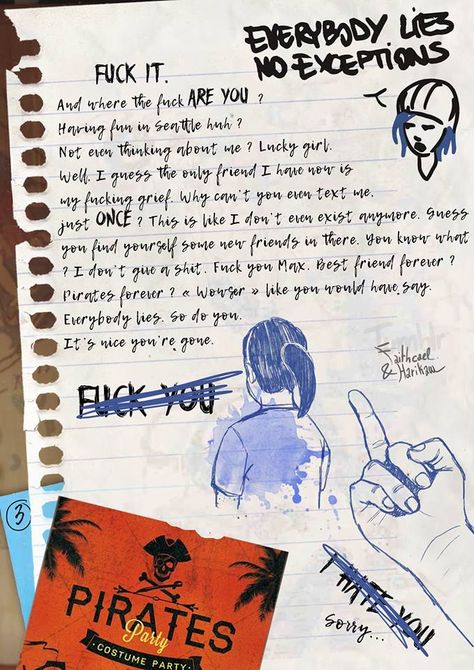 EVERYBODY LIES
NO EXCEPTIONS
FUCK IT.
And where the fuck ARE YOU ?
Having fun in Seattle huh ?
Not even thinking about me ? Lucky girl.
Well. I guess the only friend I have now is
my fucking grief. Why can't you even text me,
just ONCE ? This is like I don't even exist anymore. Guess
you find yourself some new friends in there. You know what
? I don't give a shit. Fuck you Max. Best friend forever ?
Pirates forever ? « Wowser » like you would have say.
Everybody lies. So do you.
It's nice you're gone.
Faithcoel
& Harikau
FUCK YOU
3
PIRATES
Party
COSTUME PARTY
I HATE YOU
sorry...